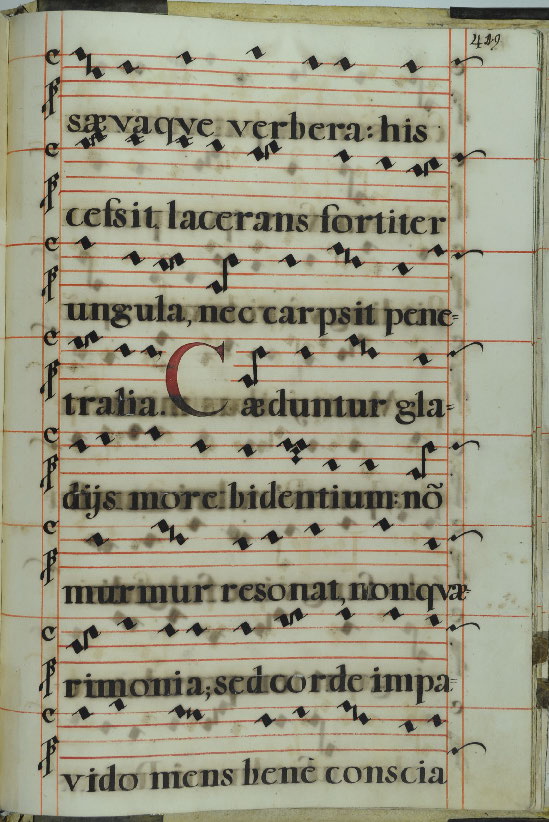 429
sævaqve verbera: his
cefsit lacerans fortiter
ungula, nec carpsit pene=
tralia. Cæduntur gla=
dijs more bidentium: nõ
murmur resonat, non qvæ=
rimonia; sed corde impa=
vido mens bene conscia